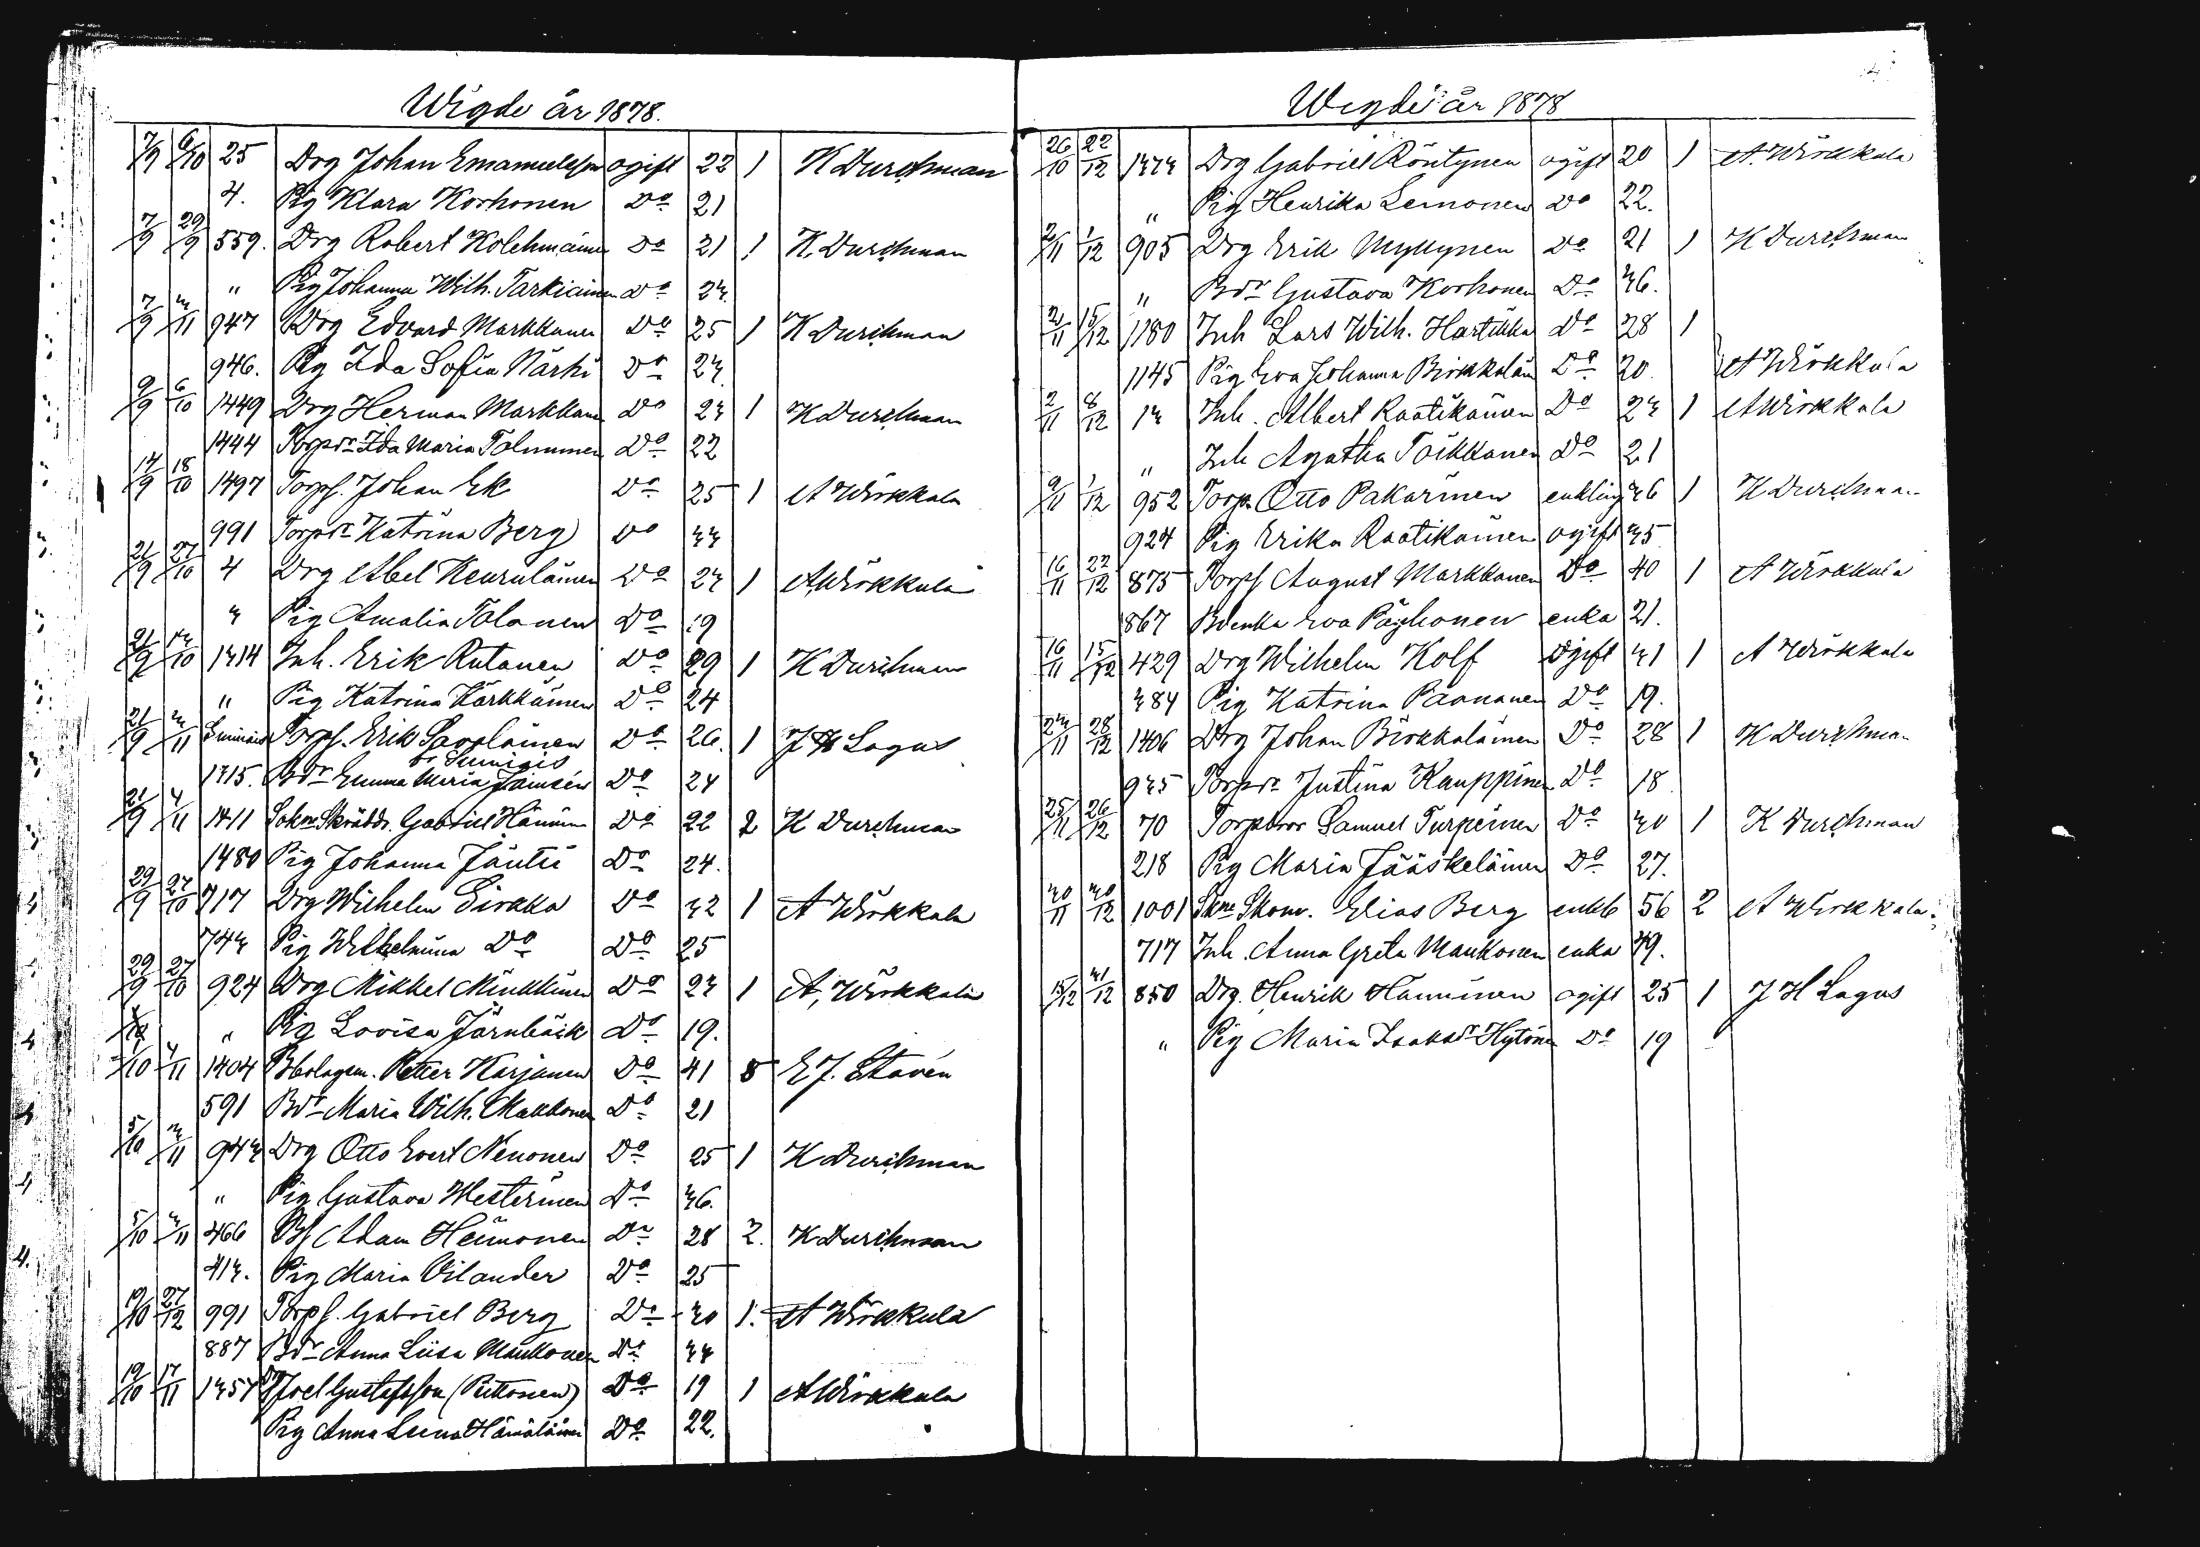 Wigde år 1878.
7/9 6/10 25 Drg Johan Emanuelsson ogift 22 1 K Durchman
4. Pig Klara Korhonen Do 21
7/9 29/9 559. Drg Robert Kolehmainen Do 21 1 K. Durchman
" Pig Johanna Wilh. Tarkiainen Do 23
7/9 3/11 947 Drg Edvard Markkanen Do 25 1 K Durchman
946. Pig Ida Sofia Närhi Do 23
9/9 6/10 1449 Drg Herman Markkanen Do 23 1 K Durchman
1444 Torpdr Ida Maria Tolmunen Do 22
14/9 18/10 1497 Torps. Johan Ek Do 25 1 A Wirkkala
991 Torpdr Katrina Berg Do 33
21/9 27/10 4 Drg Abel Keurulainen Do 23 1 A Wirkkula
" Pig Amalia Tolonen Do 19
21/9 13/10 1314 Inh. Erik Rutanen Do 29 1 K Durchman
" Pig Katrina Kärkkäinen Do 24
21/9 3/11 Torps. Erik Savolainen Do 26. 1 J H Lagus
1315. Bdr Emma Maria Do 24
21/9 4/11 1411 Sokne Skräddr. Gabriel Hänninen Do 22 2 K Durchman
1480 Pig Johanna Jäntti Do 24.
29/9 27/10 717 Drg Wilhelm Sirkka Do 32 1 A Wirkkala
743 Pig Wilhelmina Do Do 25
29/9 27/10 924 Drg Mikkel Minkkinen Do 23 1 A, Wirkkala
" Pig Lovisa Järnbäck Do 19.
/10 4/11 1404 Bbolagsm. Petter Karjanen Do 41 5 E J. Stavén
591 Bdr Maria Wilh. Makkonen Do 21
5/10 3/11 943 Drg Otto Evert Nenonen Do 25 1 K Durchman
" Pig Gustava Westerinen Do 36.
5/10 3/11 466 Bs Adam Heinonen Do 28 2. K Durchman
413. Pig Maria Vilander Do 25
19/10 27/12 991 Torps. Gabriel Berg Do 30 1. A Wirkkula
887 Bdr Anna Liisa Maukonen Do 33
19/10 17/11 1357 Joel Gustafsson (Puttonen) Do 19 1 A Wirkkala
Pig Anna Leena Hämäläinen Do 22.
Wigde år 1878
26/10 22/12 1373 Drg Gabriel Röntynen ogift 20 1 A. Wirkkala
" Pig Henrika Leinonen Do 22.
2/11 1/12 905 Drg Erik Myllynen Do 21 1 K Durchman
" Bdr Gustava Korhonen Do 36.
2/11 15/12 1180 Inh Lars Wilh. Hartikka Do 28 1
1145 Pig Eva Johanna Pirkkaläin Do 20 A Wirkkula
2/11 8/12 13 Inh. Albert Raatikainen Do 23 1 A Wirkkala
" Inh Agatha Toikkanen Do 21
9/11 1/12 952 Torp. Otto Pakarinen enkling 36 1 K Durchman
924 Pig Erika Raatikainen ogift 35
16/11 22/12 875 Torps August Markkanen Do 40 1 A Wirkkula
867 Bdenka Eva Päyhonen enka 21.
16/11 15/12 429 Drg Wilhelm Kolf Ogift 31 1 A Wirkkala
384 Pig Katrina Paananen Do 19.
23/11 28/12 1406 Drg Johan Pirkkaläinen Do 28 1 K Durchman
935 Torpdr Justina Kauppinen Do 18
25/11 26/12 70 Torpbror Samuel Turpeinen Do 30 1 K Durchman
218 Pig Maria Jääskeläinen Do 27.
30/11 30/12 1001 Skne Skom. Elias Berg enkl 56 2 A Wirkkala.
717 Inh. Anna Greta Maukonen enka 49.
15/12 31/12 850 Drg. Henrik Hänninen ogift 25 1 J H Lagus
" Pig Maria Isaksdr Hytönen Do 19